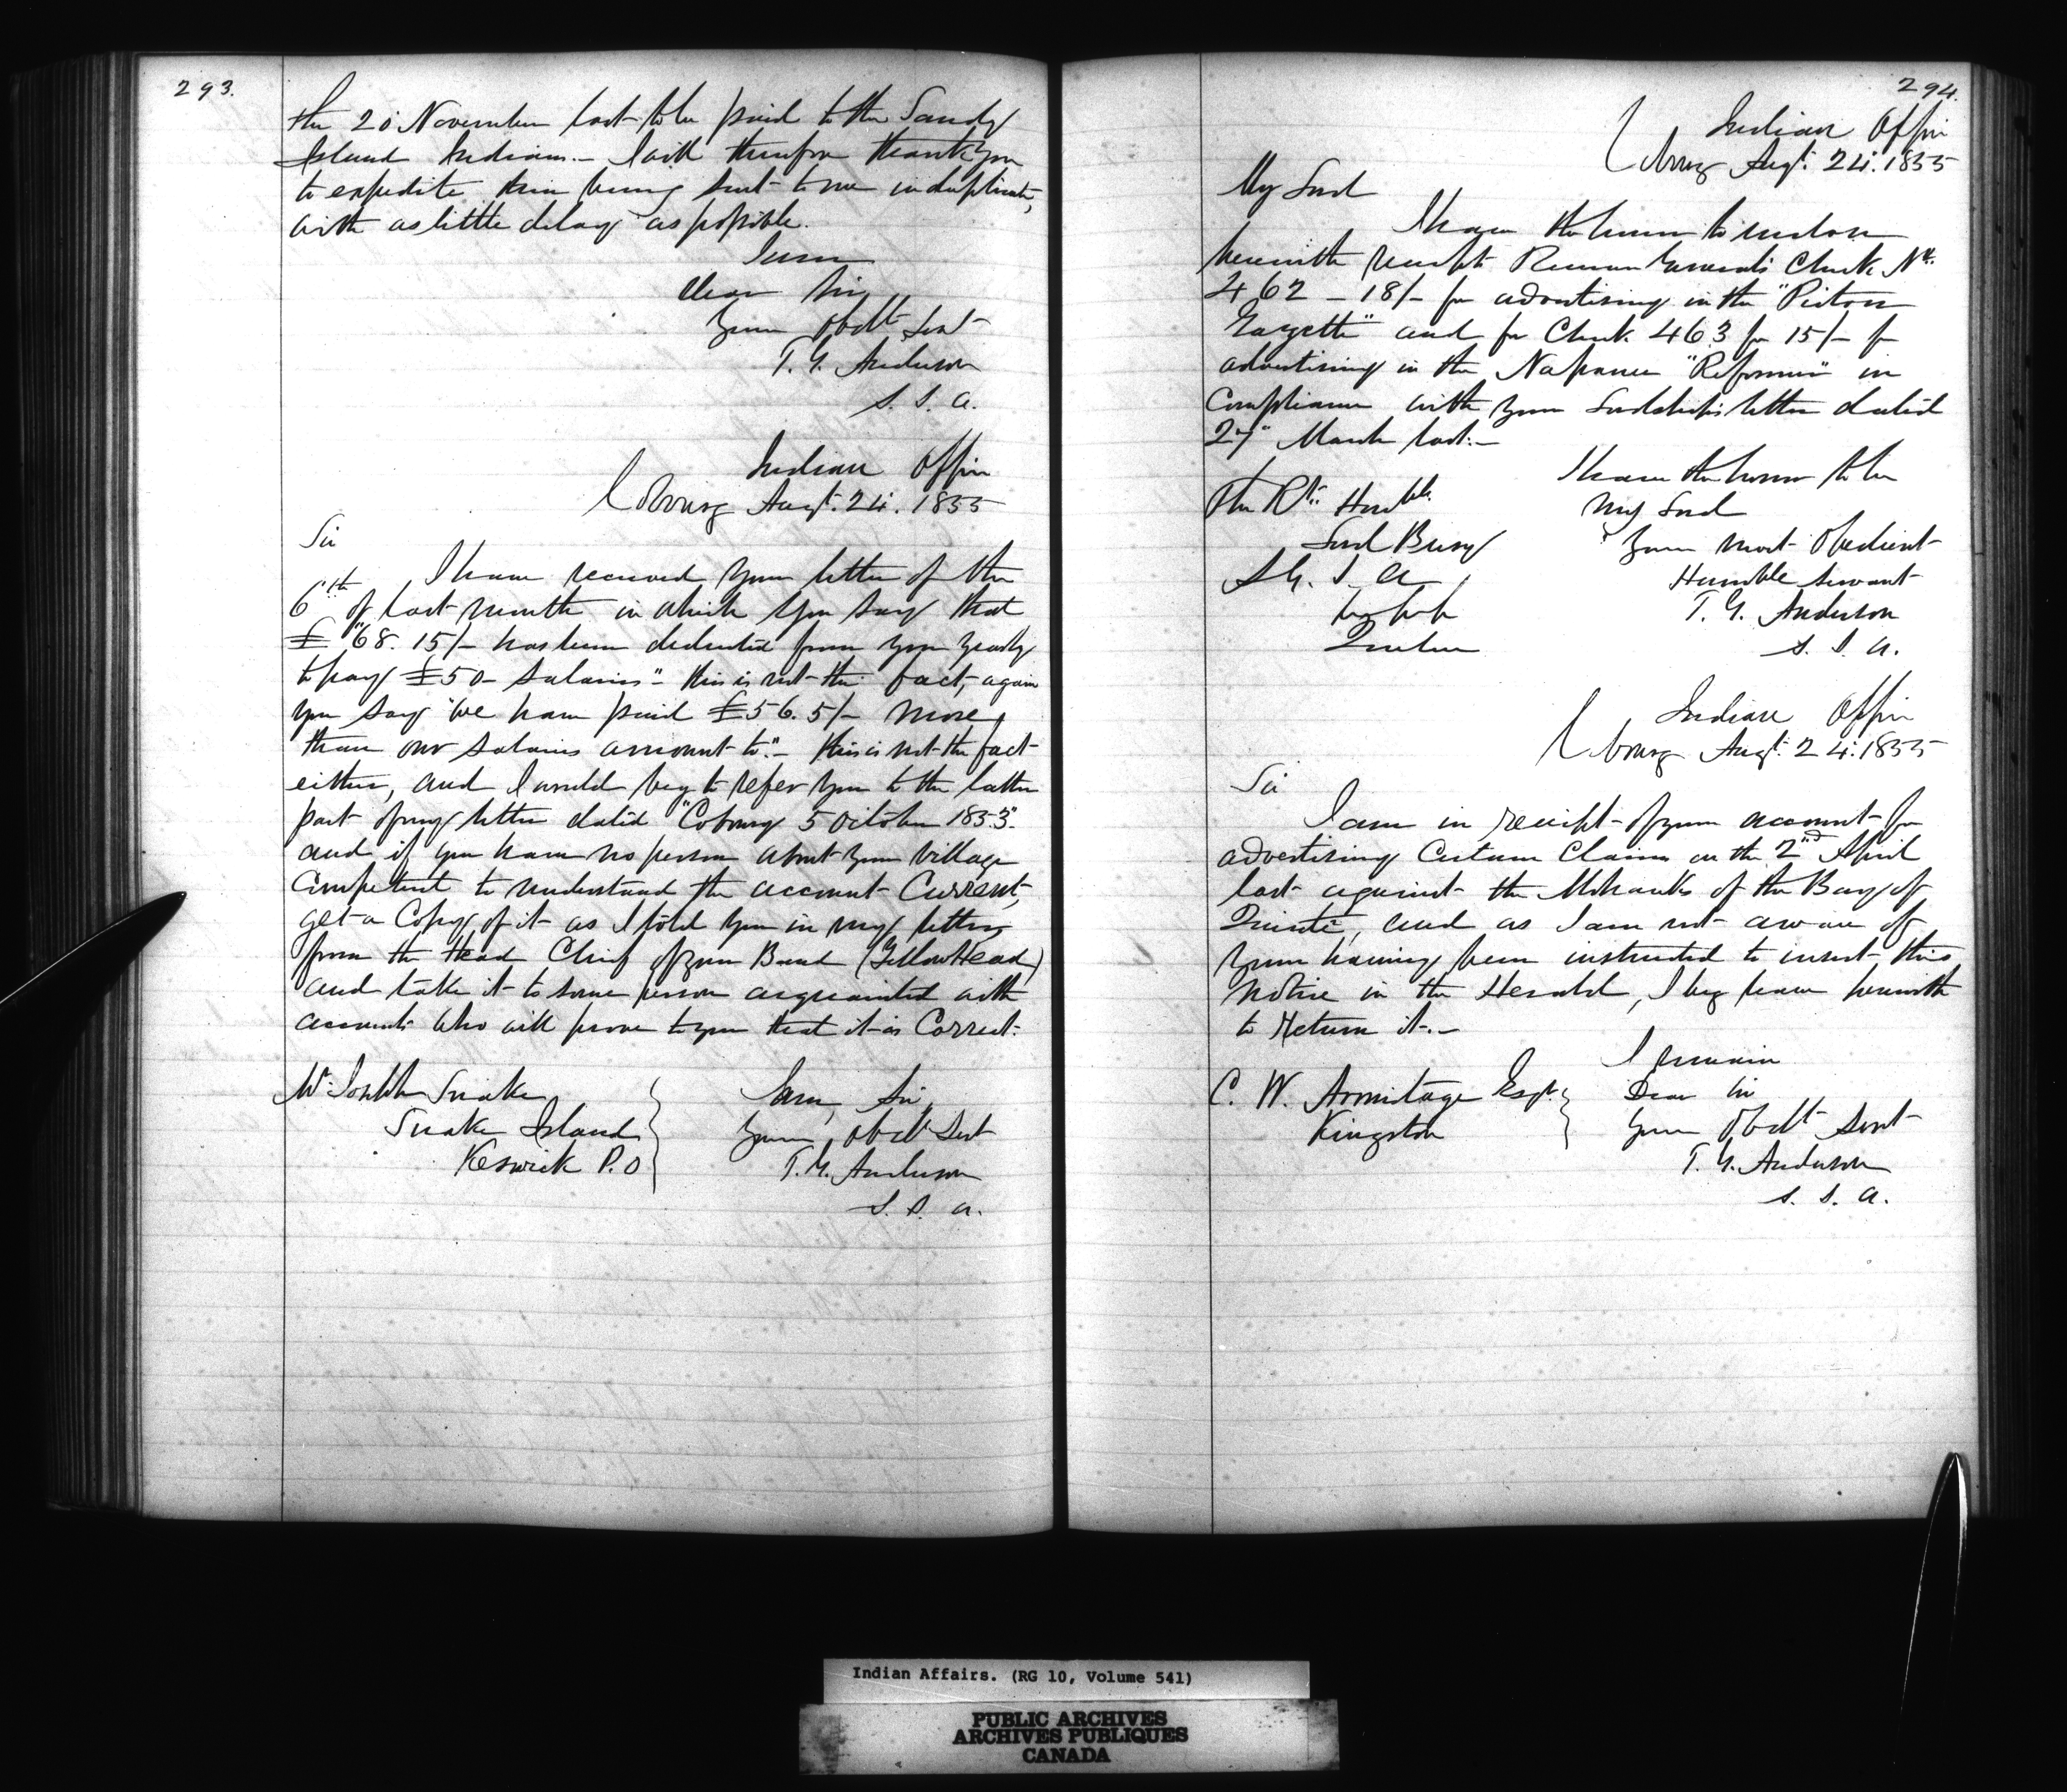 293.
the 20 November last to be paid to the Sandy
Island Indians.- I will therefore thank you
to expedite their being sent to me in duplicate,
with as little delay as possible.
I am
Dear Sir
Your Obdt Servt
T. G. Anderson
S. I. A.
Indian Office
Cobourg Augt. 24. 1855
Sir
I have received your letter of the
6th of last month in which you say that
£"68. 15/- has been deducted from your yearly
to pay £50- Salaries"- this is not the fact, again
you say "we have paid £56. 5/- more
than our Salaries amount to."- this is not the fact
either, and I would beg to refer you to the latter
part of my letter dated "Cobourg 5 October 1853".
and if you have no person about your Village
Competent to understand the account Current,
get a Copy of it as I told you in my letter
from the Head Chief of your Band (Yellowhead)
and take it to some person acquainted with
accounts who will prove to you that it is Correct.
Mr. Joseph Snake
Snake Island
Keswick P.O
I am, Sir,
Your Obdt Servt
T. G. Anderson
S. I. A.
294.
Indian Office
Cobourg Augt. 24. 1855
My Lord
I have the honor to enclose
herewith receipt Receiver General's Check No.
462 - 18/- for advertising in the "Picton
Gazette" and for Check 463 for 15/- for
advertising in the Napanee "Reformer" in
Compliance with your Lordship's letter dated
27" March last.-
I have the honor to be
My Lord
Your most Obedient
Humble Servant
T. G. Anderson
S. I. A.
The Rt. Honble.
Lord Bury
S. G. I. A.
Quebec
Indian Office
Cobourg Augt. 24. 1855
Sir
I am in receipt of your account for
advertising Certain Claims on the 2nd April
last against the Mohawks of the Bay of
Quinte, and as I am not aware of
your having been instructed to insert this
Notice in the Herald, I beg leave herewith
to return it.-
I remain
Dear Sir
Your Obdt Servt
T. G. Anderson
S. I. A.
C. W. Armitage Esqr.
Kingston
Indian Affairs. (RG 10, Volume 541)
PUBLIC ARCHIVES
ARCHIVES PUBLIQUES
CANADA